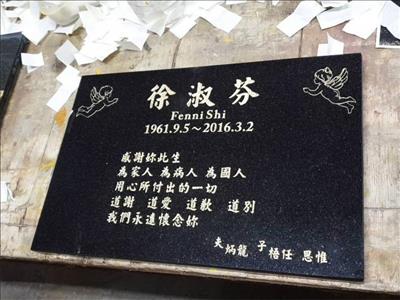 徐淑芬
Fenni Shi
1961.9.5～2016.3.2
感謝妳此生
為家人 為病人 為國人
用心所付出的一切
道謝 道愛 道歉 道別
我們永遠懷念妳
夫炳龍 子梧任 恩惟